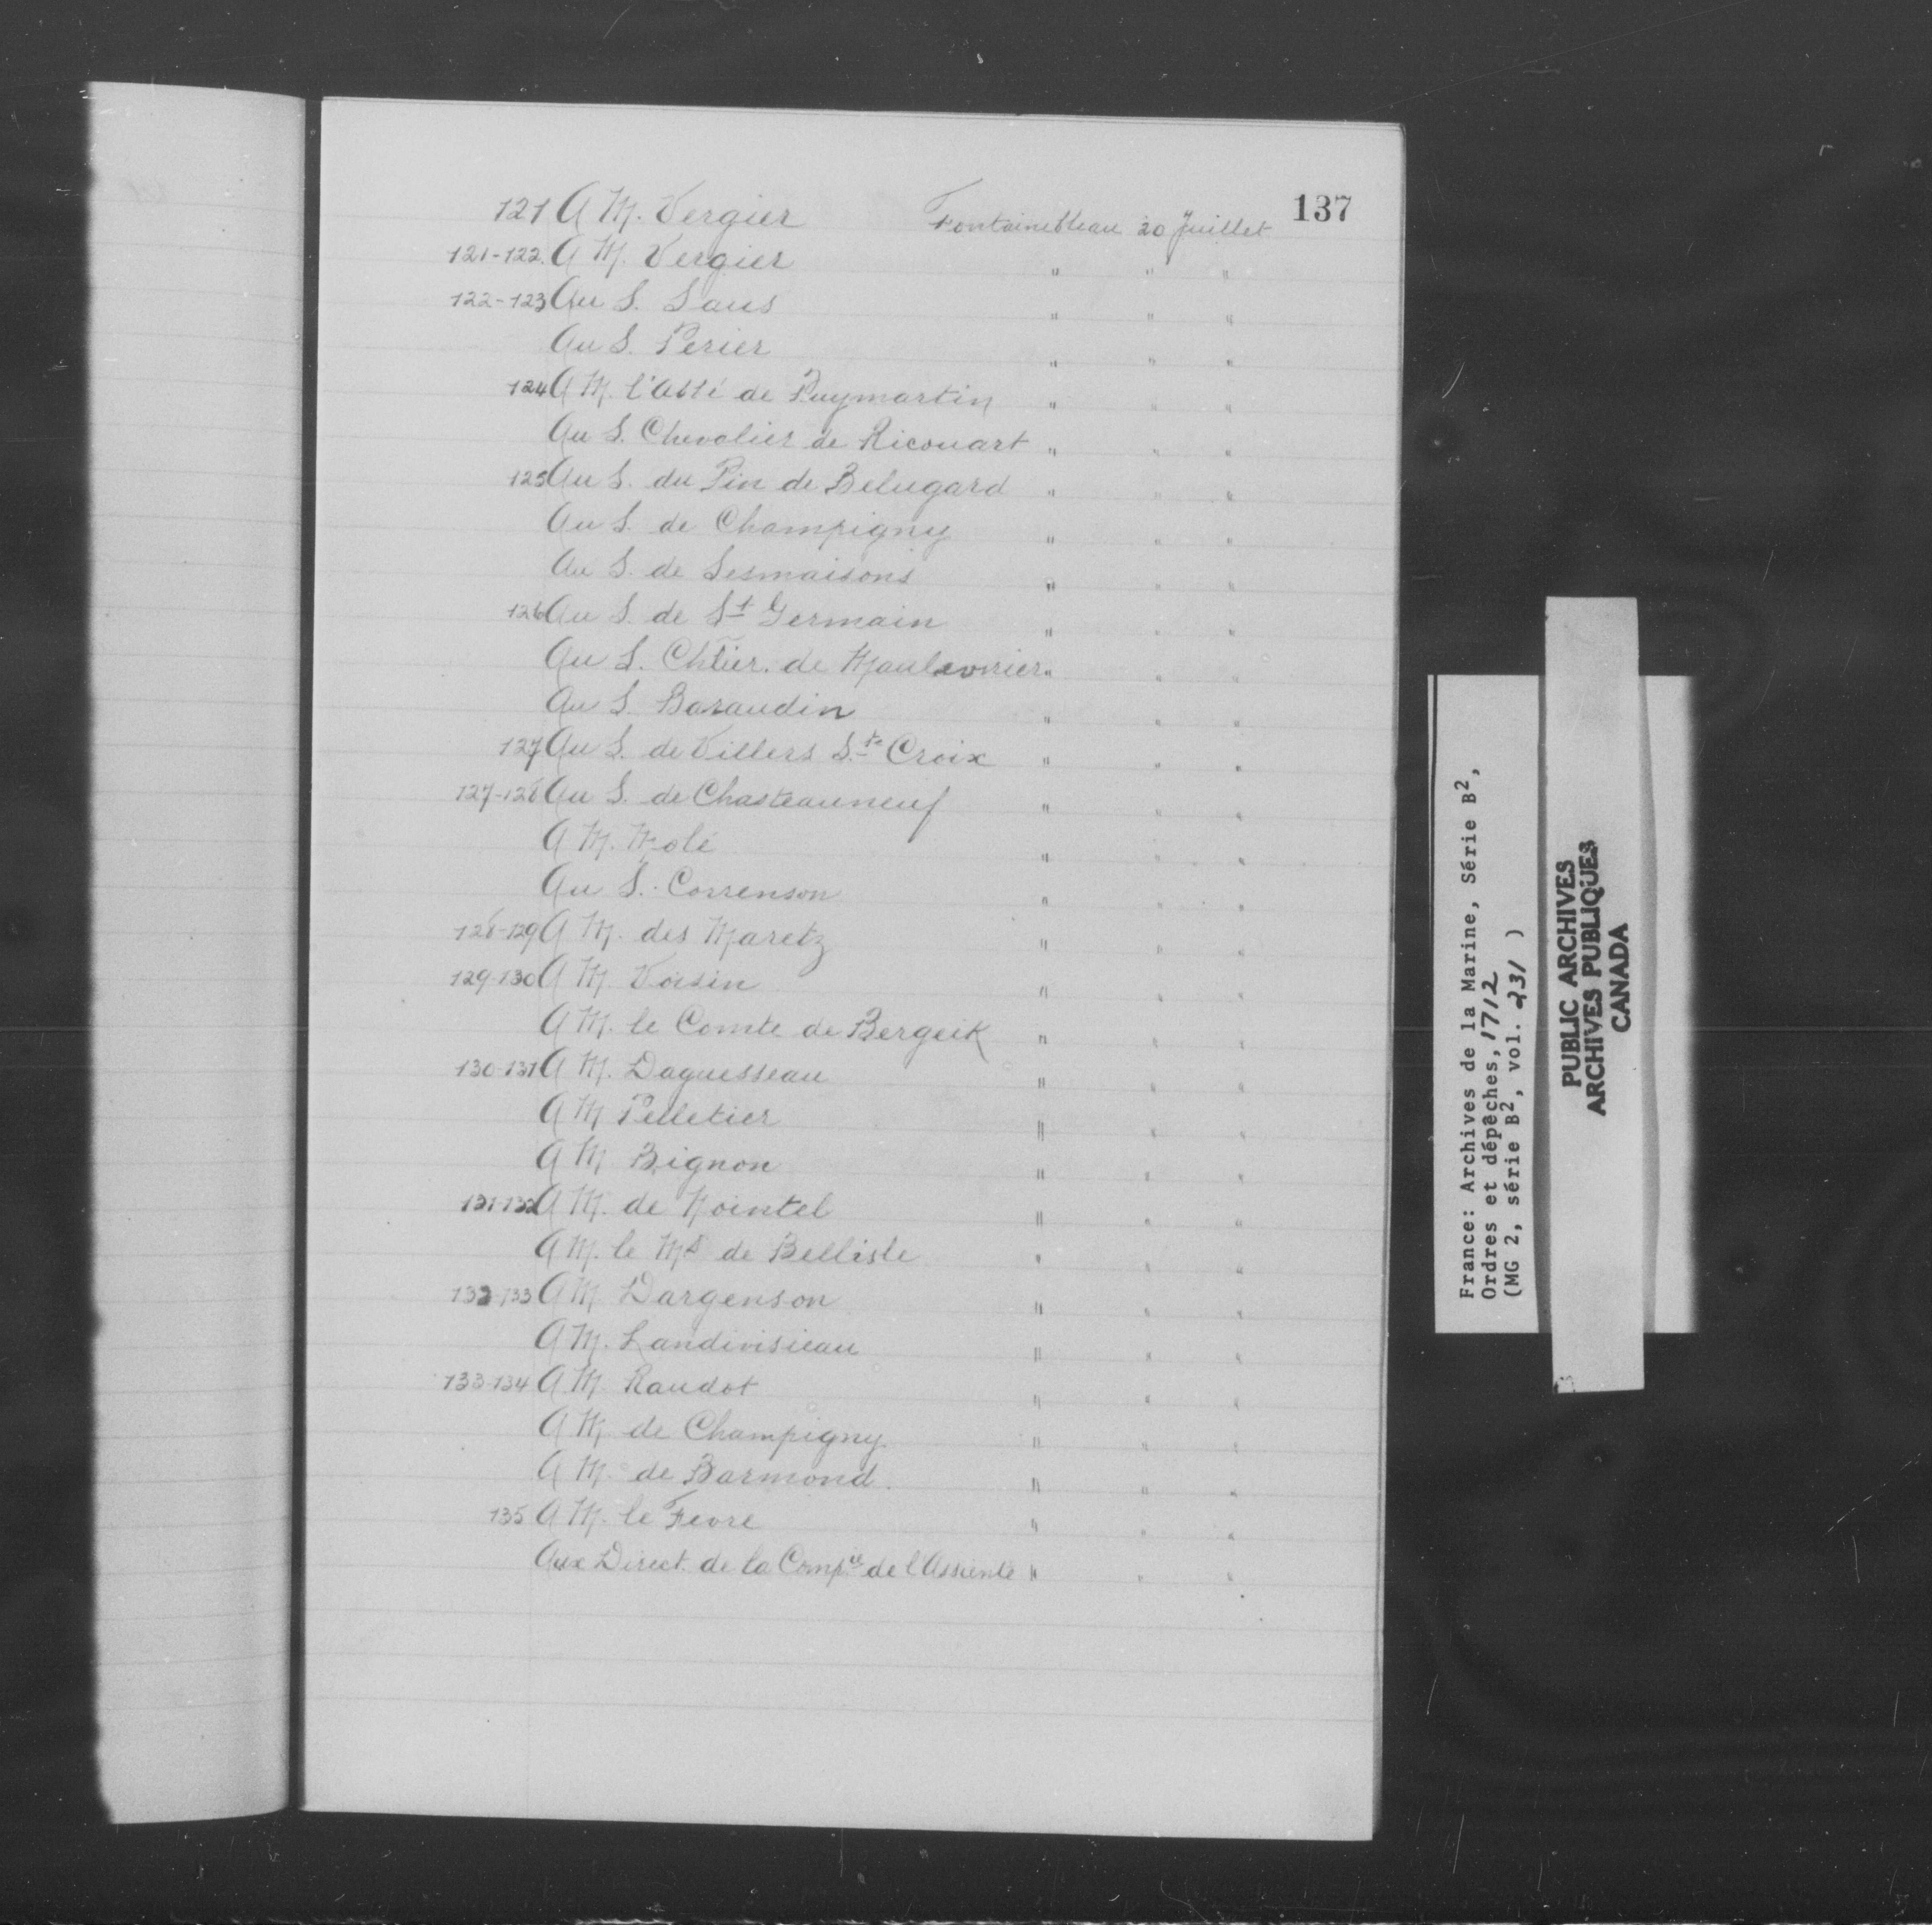 137
121 A M. Vergier Fontainebleau 20 Juillet
121-122. A M. Vergier " " "
122-123 Au S. Saus " " "
Au S. Perier " " "
124 A M. l'abbé de Puymartin " " "
Au S. Chevalier de Ricouart " " "
125 Au S. du Pin de Belugard " " "
Au S. de Champigny " " "
Au S. de Sesmaisons " " "
126 Au S. de St Germain " " "
Au S. Chlier. de Maulevrier " " "
Au S. Baraudin " " "
127 Au S. de Villers S.te Croix " " "
127-128 Au S. de Chasteauneuf " " "
A M. Molé " " "
Au S. Correnson " " "
128-129 A M. des Maretz " " "
129-130 A M. Voisin " " "
A M. le Comte de Bergeik " " "
130-131 A M. Daguesseau " " "
A M Pelletier " " "
A M Bignon " " "
131-132 A M. de Nointel " " "
A M. le Ms de Bellisle " " "
132-133 A M Dargenson " " "
A M. Landivisieau " " "
133-134 A M. Raudot " " "
A M. de Champigny " " "
A M. de Barmond. " " "
135 A M. le Fevre " " "
Aux Direct. de la Compie de l'Assiente " " "
France: Archives de la Marine, Série B2,
Ordres et dépêches, 1712
(MG 2, série B2, vol. 231 )
PUBLIC ARCHIVES
ARCHIVES PUBLIQUES
CANADA